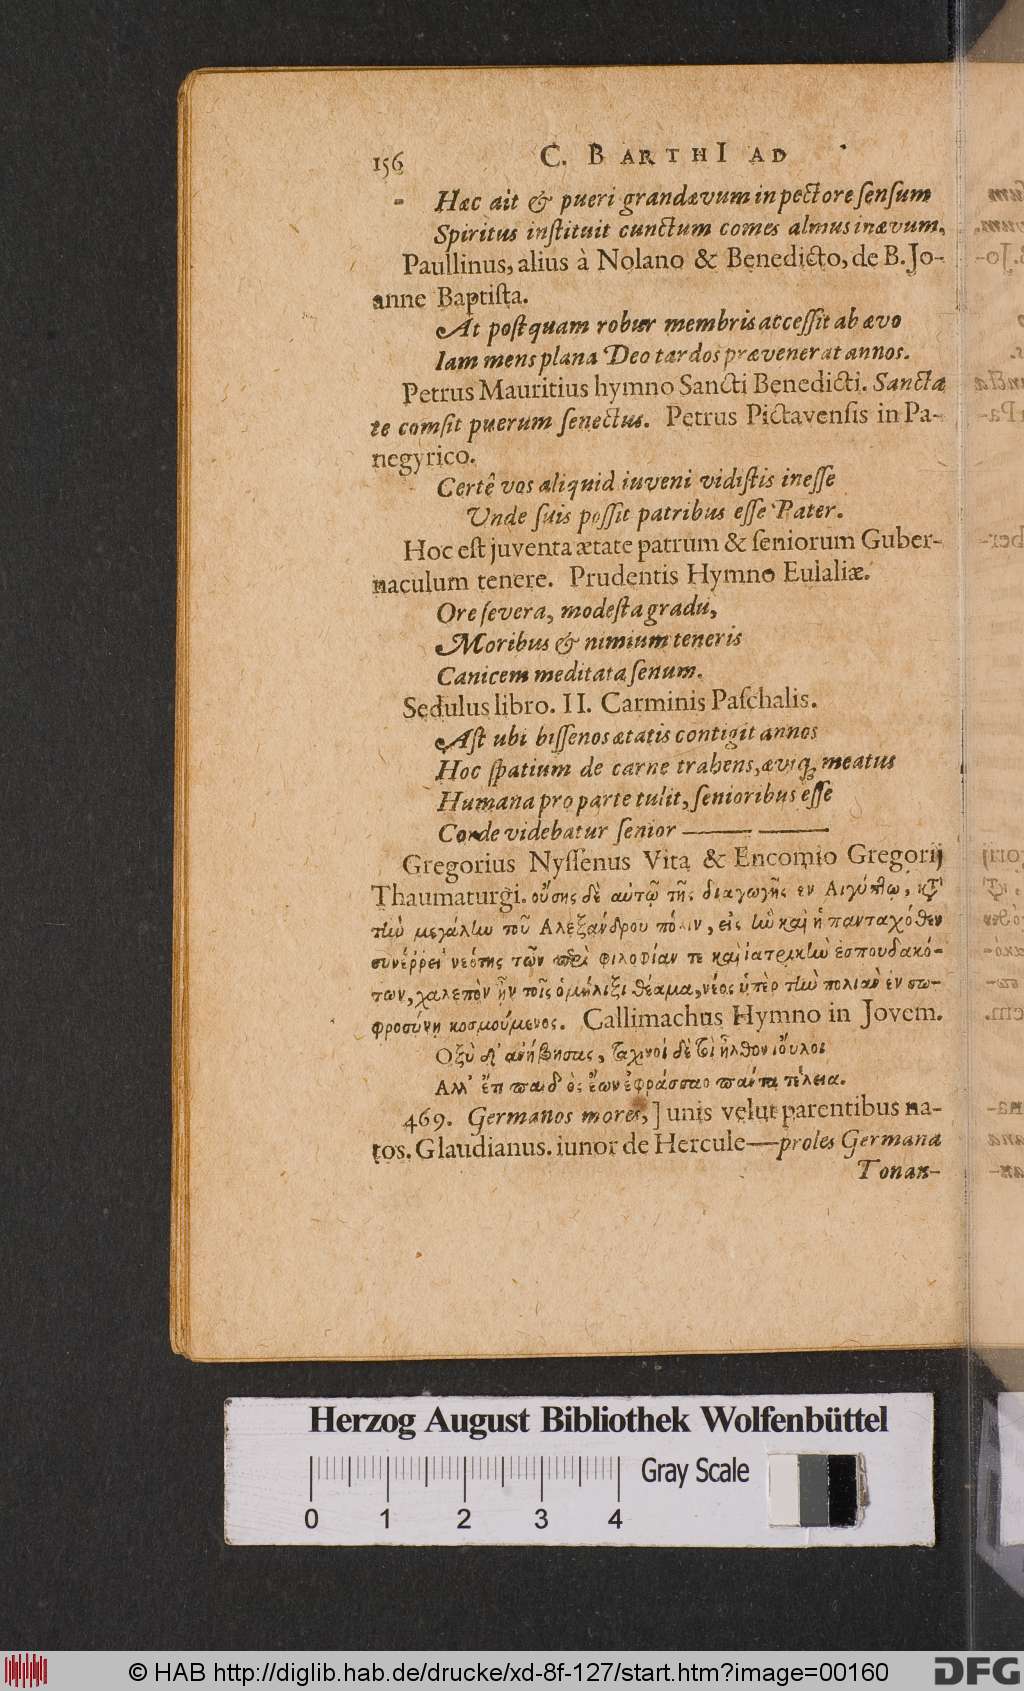 156 C. BARTHI AD
Hæc ait & pueri grandævum in pectore sensum
Spiritus instituit cunctum comes almus in ævum,
Paullinus, alius à Nolano & Benedicto, de B. Jo-
anne Baptista.
At postquam robur membris accessit ab ævo
Iam mens plana Deo tardos prævenerat annos.
Petrus Mauritius hymno Sancti Benedicti. Sancta
te comsit puerum senectus. Petrus Pictavensis in Pa-
negyrico.
Certê vos aliquid iuveni vidistis inesse
Unde suis possit patribus esse Pater.
Hoc est juventa ætate patrum & seniorum Guber-
naculum tenere. Prudentis Hymno Eulaliæ.
Ore severa, modesta gradu,
Moribus & nimium teneris
Canicem meditata senum.
Sedulus libro. II. Carminis Paschalis.
Ast ubi bissenos ætatis contigit annos
Hoc spatium de carne trahens, æviq; meatus
Humana pro parte tulit, senioribus esse
Corde videbatur senior —— ——
Gregorius Nyssenus Vita & Encomio Gregorij
Thaumaturgi. οὔσης δὲ αὐτῷ τῆς διαγωγῆς εν Αιγύπτῳ, κτ̀
τὴν μεγάλην τοῦ Αλεξάνδρου πόλιν, εἰς ἣν καὶ ἡ πανταχόθεν
συνέῤῥει νεότης τῶν περὶ φιλοσοφίαν τε καὶ ἰατρικὴν ἐσπουδακό-
των, χαλεπὸν ἦν τοῖς ὁμήλιξι θέαμα, νέος ὑπὲρ τὴν πολιὰν ἐν σω-
φροσύνῃ κοσμούμενος. Callimachus Hymno in Jovem.
Οξὺ δ' ανήβησας, ταχινοὶ δὲ τοὶ ἦλθον ἰοῦλοι
Αλλ' ἔτι παιδ' ὸς ἐὼν ἐφράσσαο πάντα τέλεια.
469. Germanos mores, ] unis velut parentibus na-
tos. Glaudianus. iunor de Hercule—proles Germana
Tonan-
Herzog August Bibliothek Wolfenbüttel
Gray Scale
0 1 2 3 4
© HAB http://diglib.hab.de/drucke/xd-8f-127/start.htm?image=00160
DFG